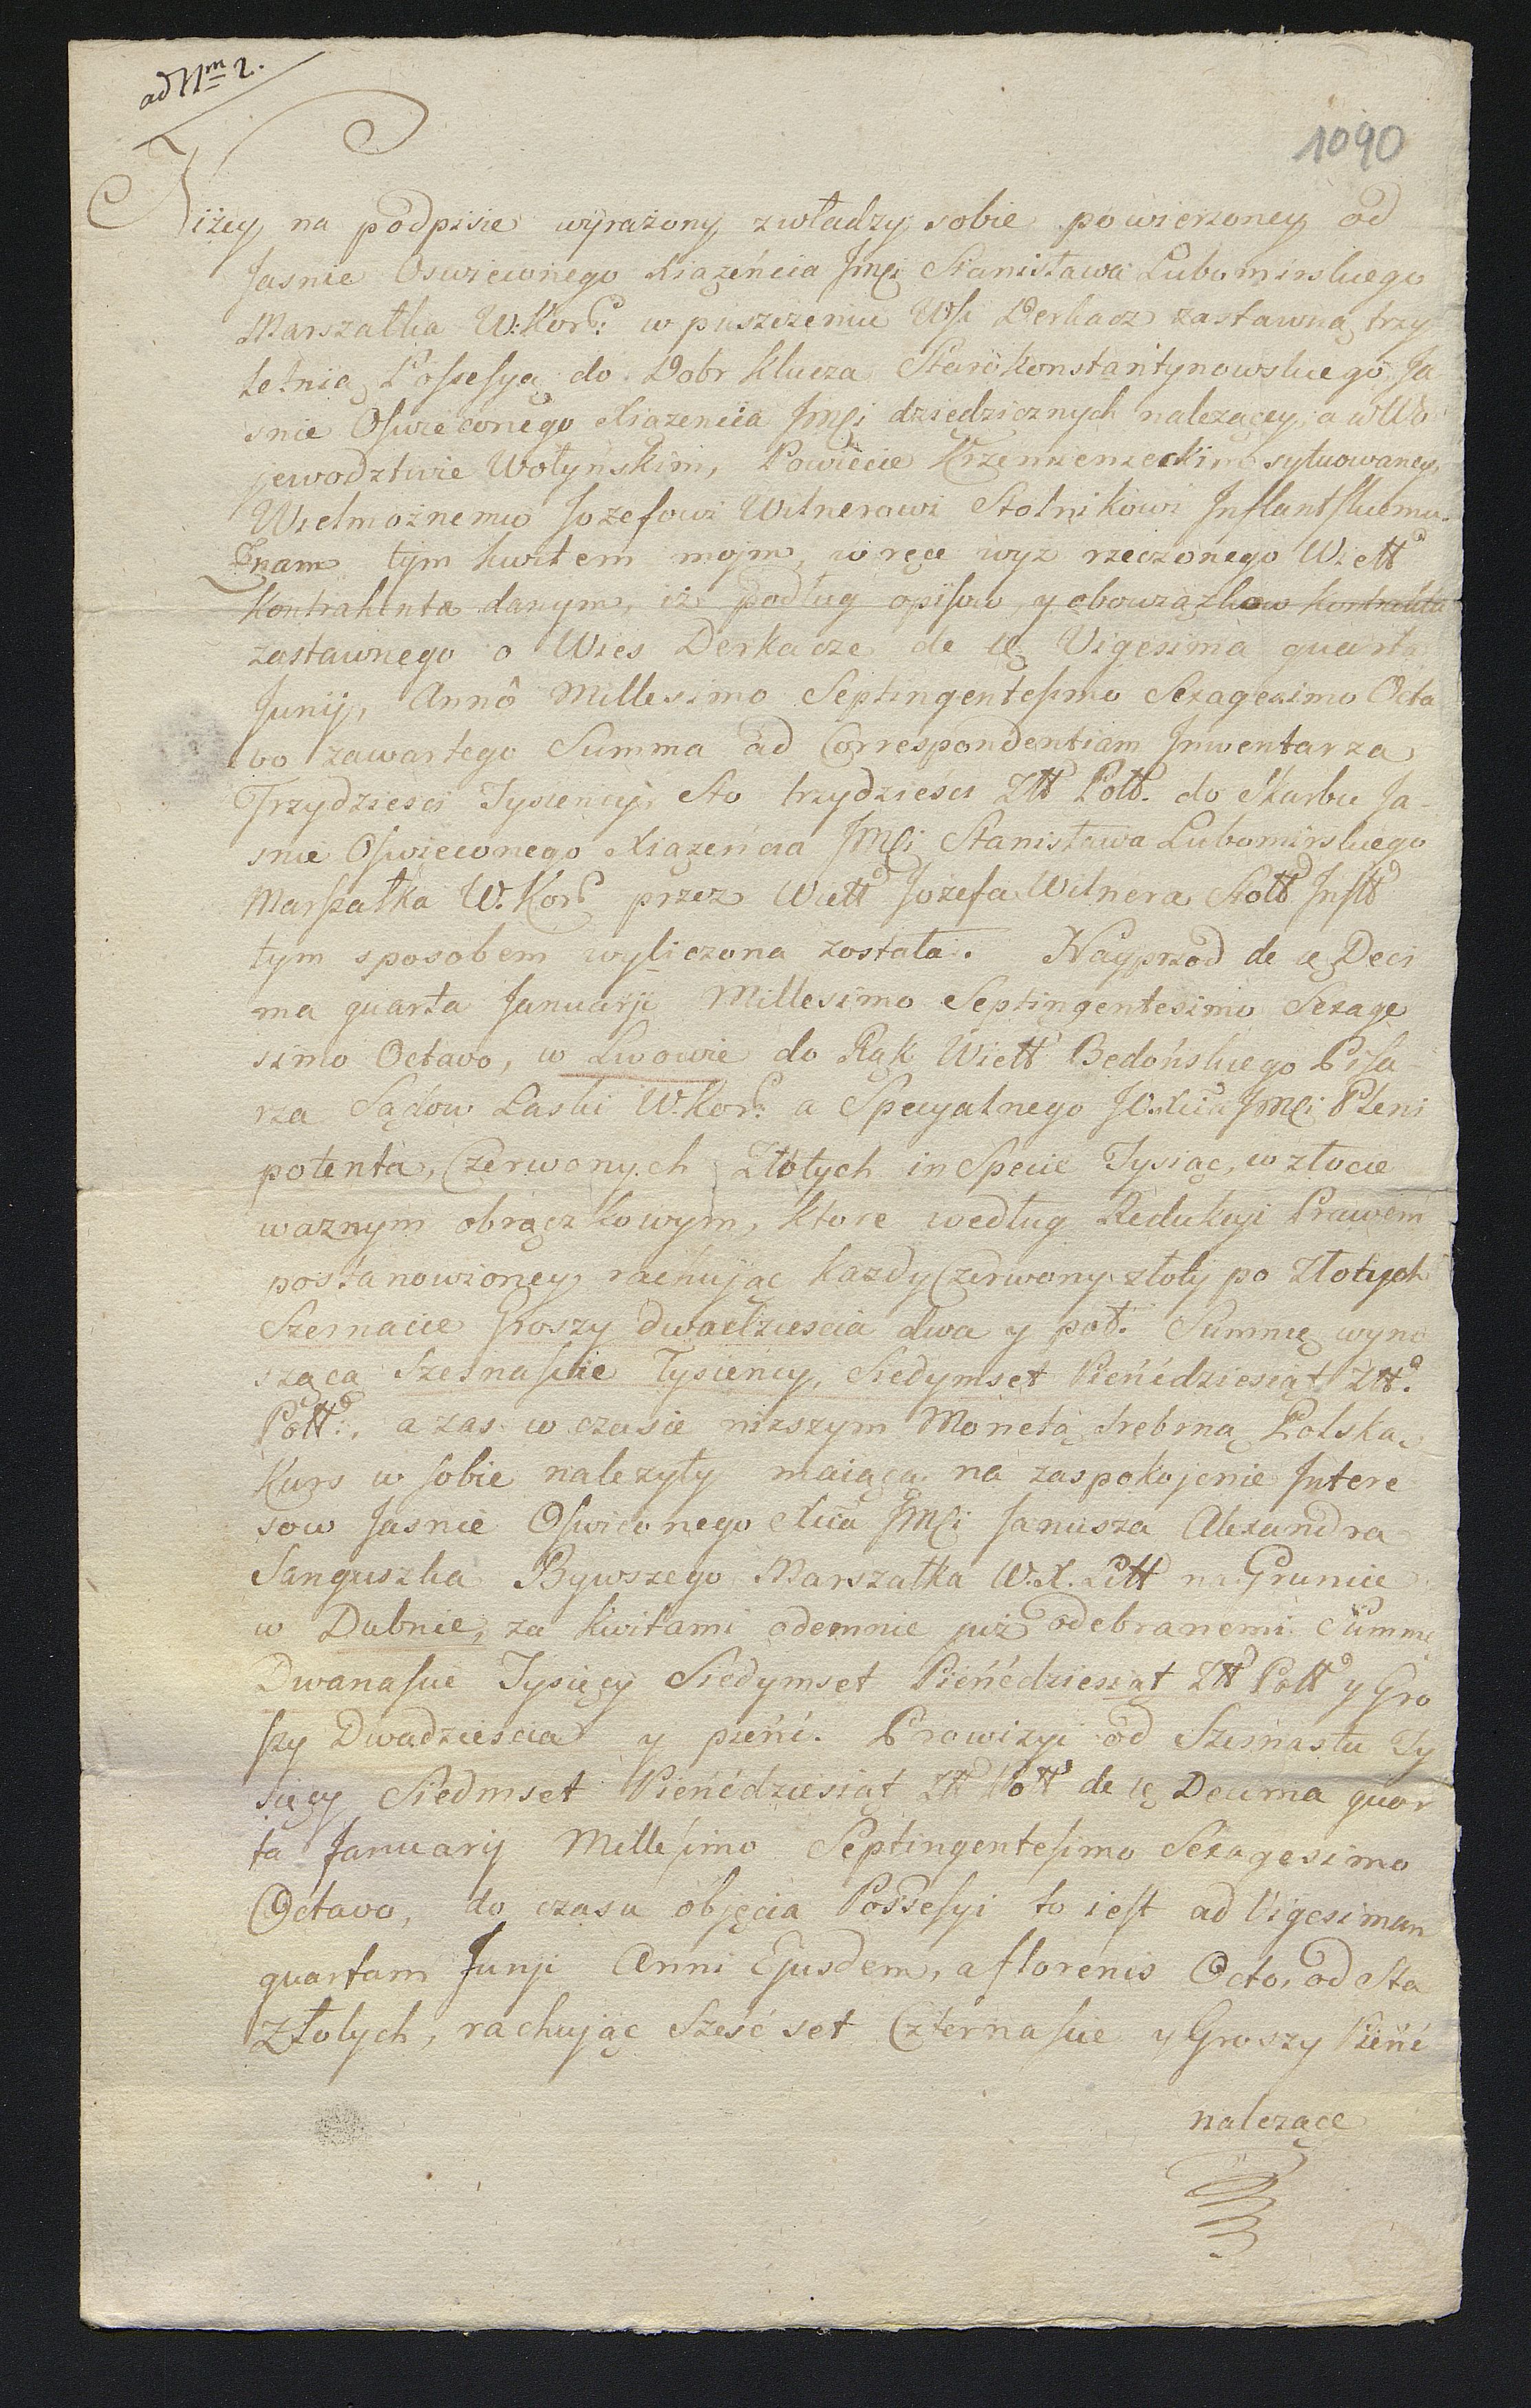 ad Nm 2.
1090
Niżey na podpisie wyrażony z władzy sobie powierzoney od
Jasnie Oswieconego Xiążęńcia Jmći Stanisława Lubomirskiego
Marszałka W: Kord: w puszczeniu Wsi Derkacz zastawną trzy
letnią Possesyą do Dobr Klucza Starokonstantynowskiego Ja
snie Oswieconego Xiazencia Jmći dziedzicznych nalezącey, a w Wo
jewodztwie Wołyńskim, Powiecie Krzemienieckim sytuowaney,
Wielmożnemu Jozefowi Wilnerowi Stolnikowi Inflantskiemu.
Znam tym kwitem mojm, w ręce wyz rzeczonego Wiellt
Kontrahenta danym, iż podług opisow, y obowiązkow kontraktu
zastawnego o Wies Derkacze de ię Vigesima quarta
Junij, Annô Millesimo Septingentesimo Sexagesimo Octa
vo zawartego Summa ad Correspondentiam Inwentarza
Trzydziesci Tysiency, Sto trzydziesci Złł Poll. do Skarbu Ja-
snie Oswieconego Xiązeńcia Jmći Stanisława Lubomirskiego
Marszałka W. Kord przez Wiell Jozefa Wilnera Stoll Infld
tym sposobem wyliczona została. Nayprzod de ię Deci
ma quarta Januarji Millesimo Septingentesimo Sexage
simo Octavo, w Lwowie do Rąk Wiell Bedońskiego Pisa
rza Sądow Laski W. Kor: a Specyalnego JO. Xcia Jmći Pleni
potenta, Czerwonych Złotych in Specie Tysiąc, w złocie
waznym obrączkowym, ktore według Redukcyi Prawem
postanowioney, rachując kazdy Czerwony złoty po Złotych
Szesnascie Groszy dwadziescia dwa y poł. Summę wyno
szącą Szesnascie Tysiency, Siedymset Pieńćdziesiąt Złł.
Poll:, a zas w czasie niższym Monetą srebrną Polską,
Kurs w sobie nalezyty maiącą na zaspokojenie Intere
sow Jasnie Oswieconego Xcia Jmći Janusza Alexandra
Sanguszka Bywszego Marszałka W. X. Litt na Gruncie
w Dubnie, za kwitami odemnie już odebranemi Summę
Dwanascie Tysięcy Siedymset Pieńćdziesiąt Złł Poll y Gro
szy Dwadziescia y pieńć. Prowizyi od Szesnastu Ty
sięcy Siedmset Pieńćdziesiąt Złł Poll de ię Decima quar
ta Januarij Millesimo Septingentesimo Sexagesimo
Octavo, do czasu objęcia Possesyi to iest ad Vigesimam
quartam Junji Anni Ejusdem, a florenis Octo, od Sta
Złotych, rachując Sześć set Czternascie y Groszy Pieńć
nalezące